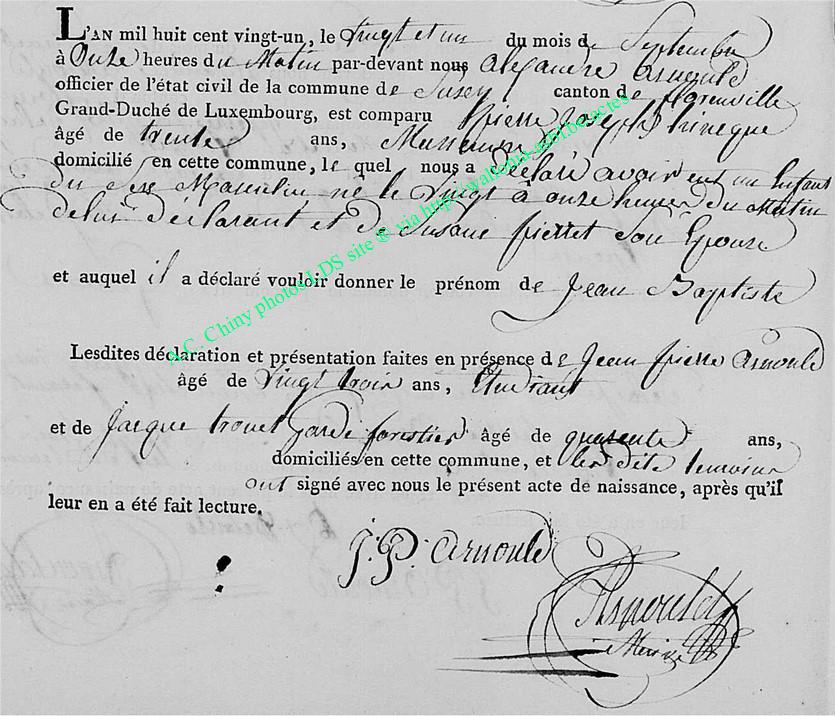 L'AN mil huit cent vingt-un, le vingt et un du mois de Septembre
à Onze heures du Matin par-devant nous Alexandre Arnould
officier de l'état civil de la commune de canton de florenville
Grand-Duché de Luxembourg, est comparu Pierre Joseph
âgé de trente ans,
domicilié en cette commune, le quel nous a déclaré avoir eut un Enfant
du Sexe Masculin né le Vingt à onze heures du Matin
de lui déclarant et de Susane pierret son Epouse
et auquel il a déclaré vouloir donner le prénom de Jean Baptiste
Lesdites déclaration et présentation faites en présence de Jean pierre Arnould
âgé de vingt trois ans, Etudiant
et de Jacque garde forestier âgé de quarente ans,
domiciliés en cette commune, et les dits temoins
ont signé avec nous le présent acte de naissance, après qu'il
leur en a été fait lecture.
J. P. Arnould
Arnould
A.C. Chiny photos LDS site ® via http://wallonia-asbl.be/actes